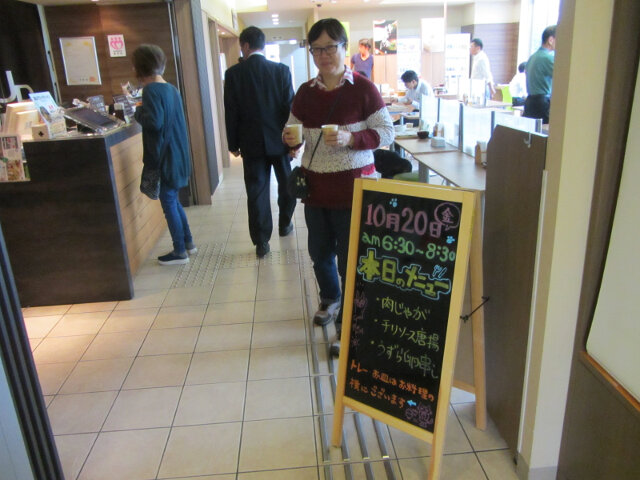 10月20日 金
am 6:30~8:30
本日のメニュー
・肉じゃが
・チリソース唐揚
・うずら卵串し
トレー お皿はお料理の
横にございます